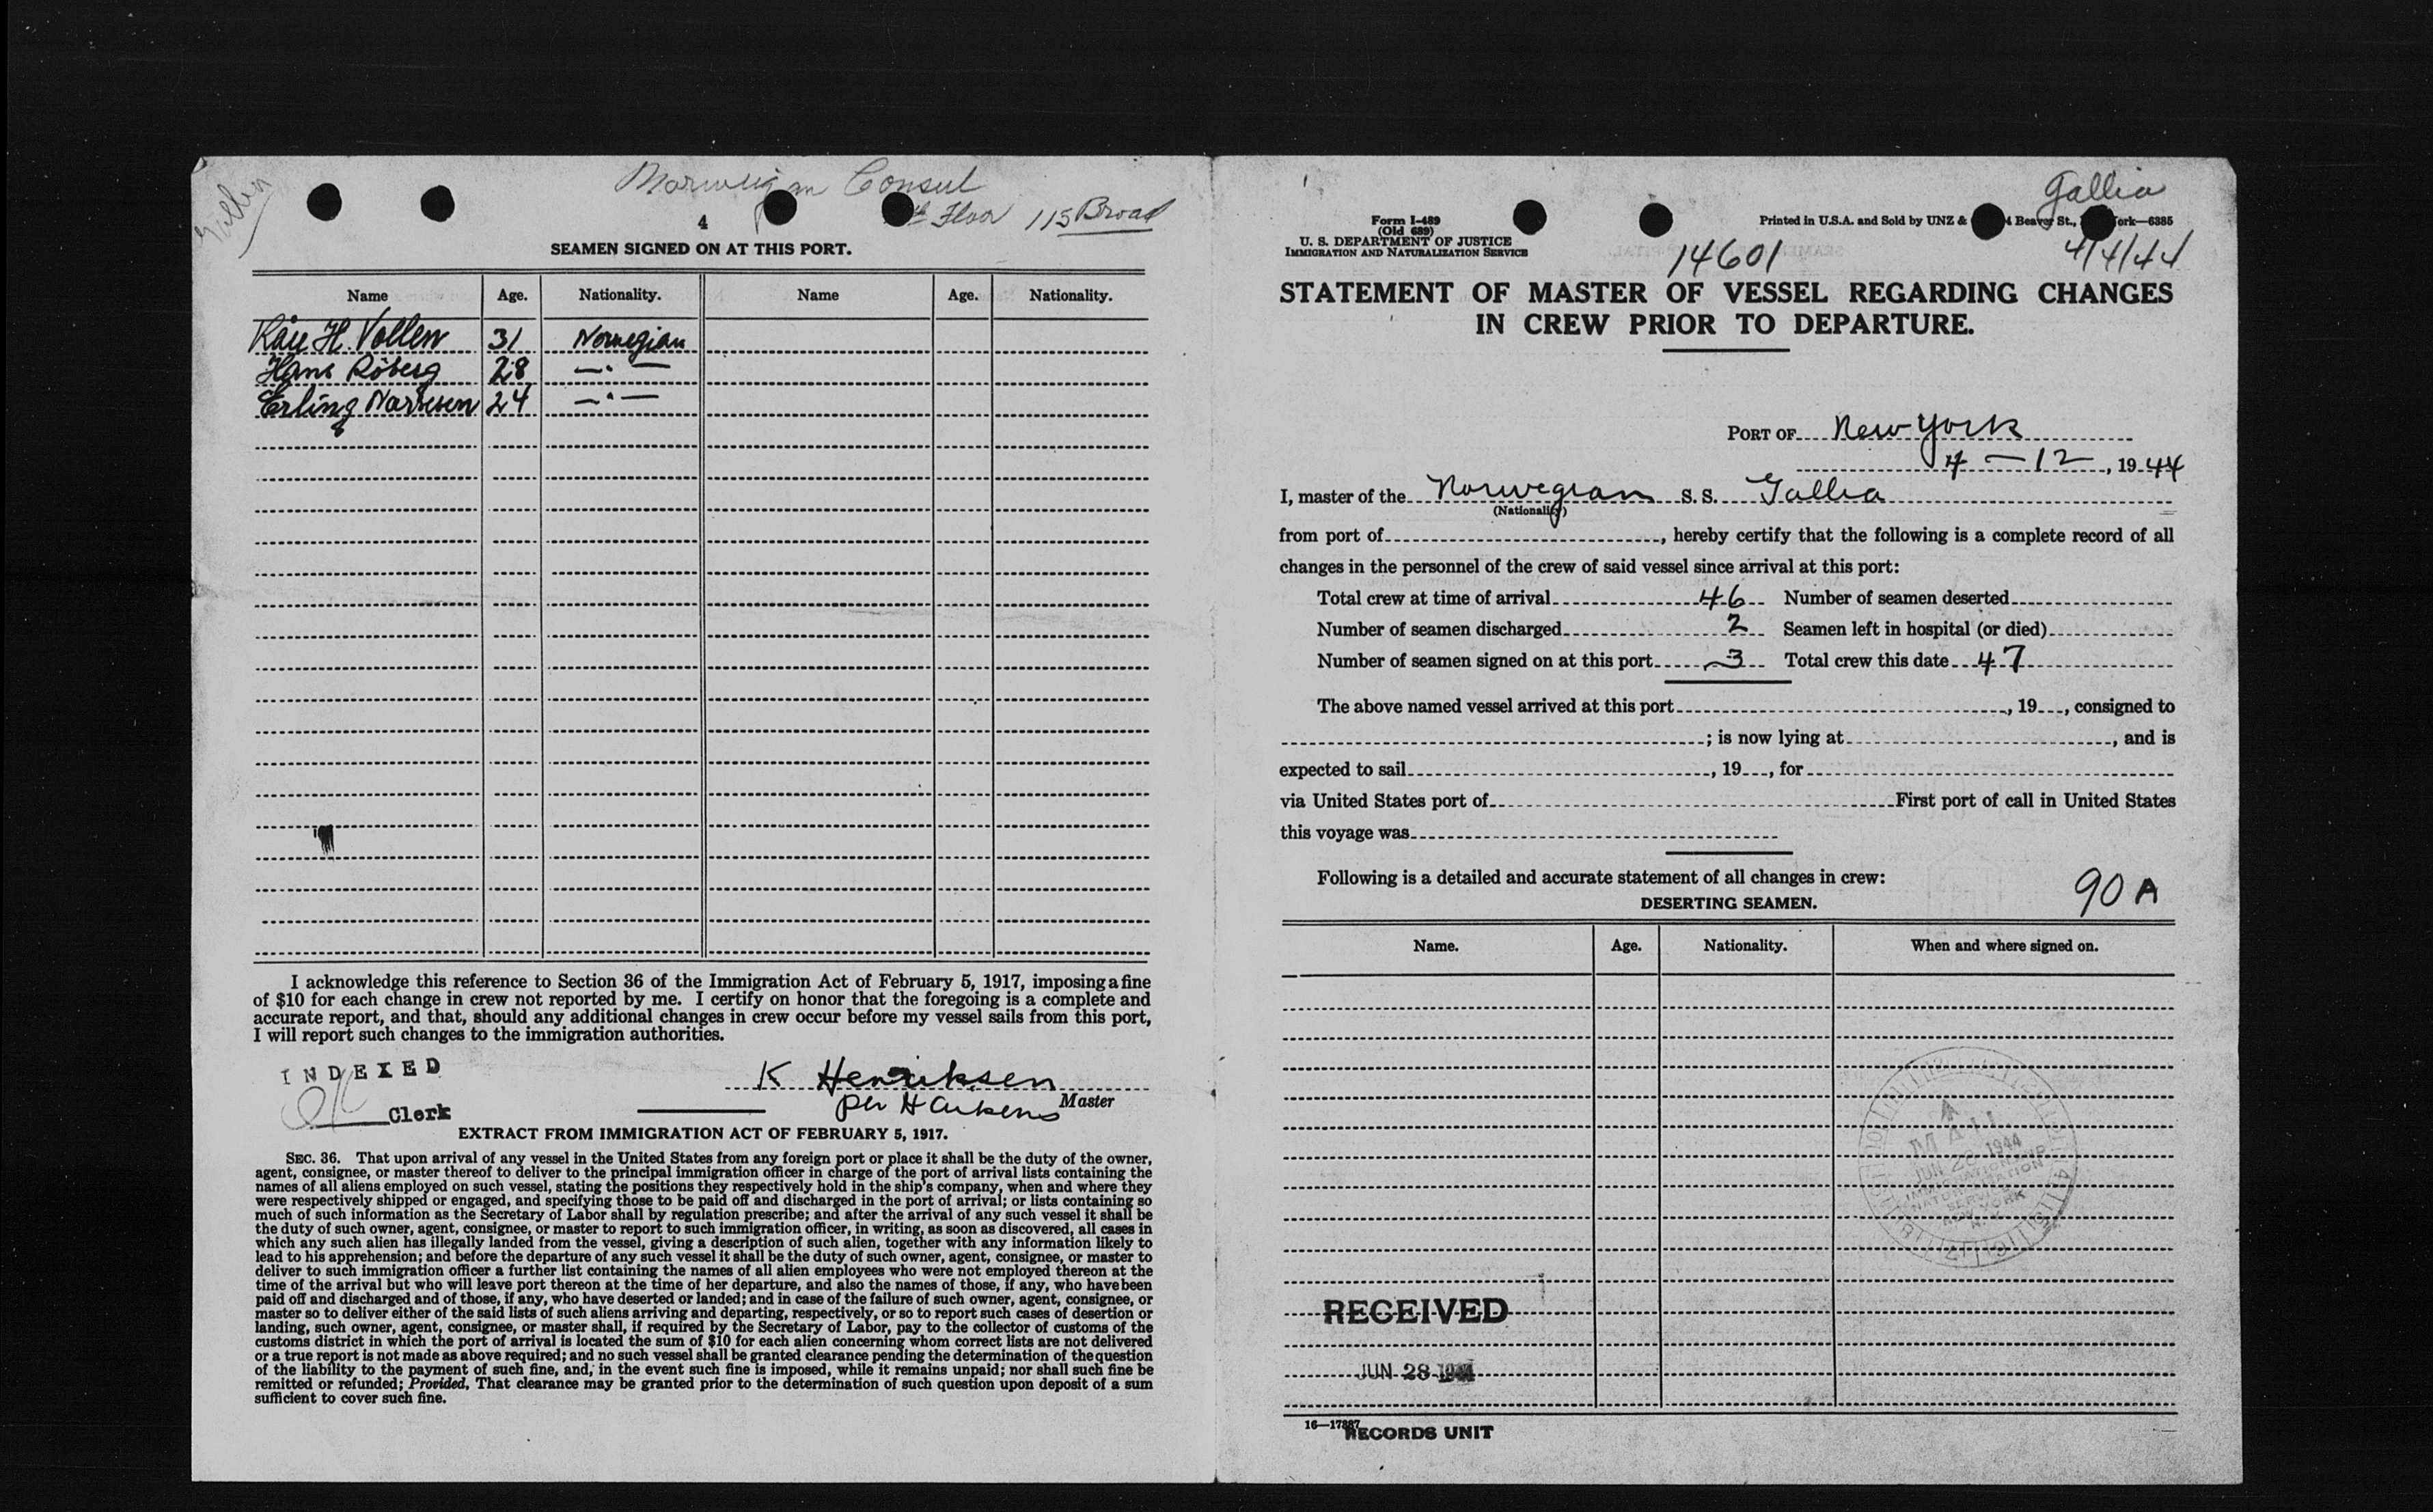 Norwegian Consul
Floor 115 Broad
4
SEAMEN SIGNED ON AT THIS PORT.
Name Age. Nationality. Name Age. Nationality.
H. Vollen 31 Norwegian
Hans Röberg 28 —"—
Erling 24 —"—
I acknowledge this reference to Section 36 of the Immigration Act of February 5, 1917, imposing a fine
of $10 for each change in crew not reported by me. I certify on honor that the foregoing is a complete and
accurate report, and that, should any additional changes in crew occur before my vessel sails from this port,
I will report such changes to the immigration authorities.
INDEXED
Clerk
K Henriksen
per H Master
EXTRACT FROM IMMIGRATION ACT OF FEBRUARY 5, 1917.
SEC. 36. That upon arrival of any vessel in the United States from any foreign port or place it shall be the duty of the owner,
agent, consignee, or master thereof to deliver to the principal immigration officer in charge of the port of arrival lists containing the
names of all aliens employed on such vessel, stating the positions they respectively hold in the ship's company, when and where they
were respectively shipped or engaged, and specifying those to be paid off and discharged in the port of arrival; or lists containing so
much of such information as the Secretary of Labor shall by regulation prescribe; and after the arrival of any such vessel it shall be
the duty of such owner, agent, consignee, or master to report to such immigration officer, in writing, as soon as discovered, all cases in
which any such alien has illegally landed from the vessel, giving a description of such alien, together with any information likely to
lead to his apprehension; and before the departure of any such vessel it shall be the duty of such owner, agent, consignee, or master to
deliver to such immigration officer a further list containing the names of all alien employees who were not employed thereon at the
time of the arrival but who will leave port thereon at the time of her departure, and also the names of those, if any, who have been
paid off and discharged and of those, if any, who have deserted or landed; and in case of the failure of such owner, agent, consignee, or
master so to deliver either of the said lists of such aliens arriving and departing, respectively, or so to report such cases of desertion or
landing, such owner, agent, consignee, or master shall, if required by the Secretary of Labor, pay to the collector of customs of the
customs district in which the port of arrival is located the sum of $10 for each alien concerning whom correct lists are not delivered
or a true report is not made as above required; and no such vessel shall be granted clearance pending the determination of the question
of the liability to the payment of such fine, and, in the event such fine is imposed, while it remains unpaid; nor shall such fine be
remitted or refunded; Provided, That clearance may be granted prior to the determination of such question upon deposit of a sum
sufficient to cover such fine.
Gallia
Form I-489
(Old 689)
U. S. DEPARTMENT OF JUSTICE
IMMIGRATION AND NATURALIZATION SERVICE
Printed in U.S.A. and Sold by UNZ & 4 Beaver St., ork—6385
14601
4/4/44
STATEMENT OF MASTER OF VESSEL REGARDING CHANGES
IN CREW PRIOR TO DEPARTURE.
PORT OF New York
4 — 12, 1944
I, master of the Norwegian S. S. Gallia
(Nationality)
from port of , hereby certify that the following is a complete record of all
changes in the personnel of the crew of said vessel since arrival at this port:
Total crew at time of arrival 46 Number of seamen deserted
Number of seamen discharged 2 Seamen left in hospital (or died)
Number of seamen signed on at this port 3 Total crew this date 47
The above named vessel arrived at this port , 19 , consigned to
; is now lying at , and is
expected to sail , 19 , for
via United States port of First port of call in United States
this voyage was
Following is a detailed and accurate statement of all changes in crew:
90 A
DESERTING SEAMEN.
Name. Age. Nationality. When and where signed on.
MAIL
JUN 28 1944
IMMIGRATION AND
NATURALIZATION
SERVICE
NEW YORK
N.Y.
RECEIVED
JUN 28 1944
16—17887
RECORDS UNIT